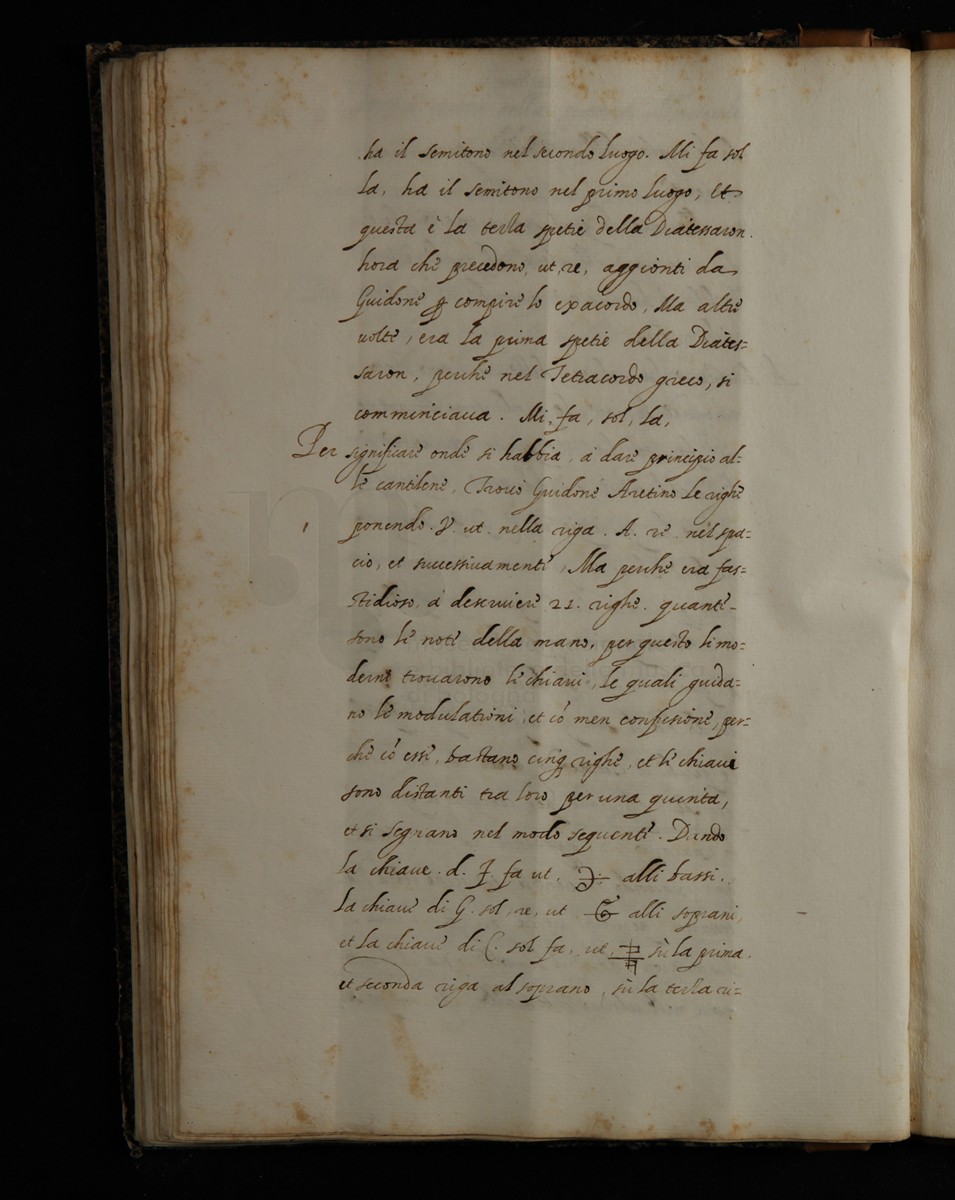 ha il semitono nel secondo luogo. Mi fa sol
la, ha il semitono nel primo luogo, Et
questa è la terza spetie della Diatessaron.
hora che precedono, ut, re, aggionti da
Guidone p compire lo exacordo, Ma altre
uolte, era la prima spetie della Diates=
saron, perche nel Tetracordo greco, si
comminciaua. Mi, fa, sol, la,
Per significare onde si habbia, à dare principio al=
le cantilene, Trouò Guidone Aretino le righe
ponendo. Γ. ut. nella riga. A. re. nel spa=
cio, et successiuamente, Ma perche era fas=
stidioso, à descriuere 21. righe. quante
sono le note della mano, per questo li mo=
derni trouarono le chiaui, le quali guida=
no le modulationi, et cō men confusione, per=
che cō esse, bastano cinq righe, et le chiaui
sono distanti tra loro per una quinta,
et si segnano nel modo seguente. Dando
la chiaue. d. F. fa ut. alli bassi.
la chiaue di G. sol, re, ut alli soprani,
et la chiaue di C. sol fa, ut, sù la prima.
et seconda riga al soprano, sù la terza ri=